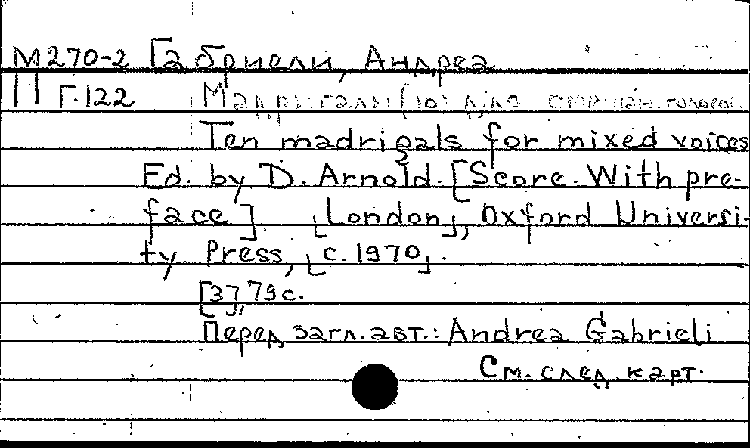 М270-2 Габриели, Андреа
П Г.122 Мадригалы (10) для смешан. голосов.
Ten madrigals for mixed voices
Ed. by D. Arnold. [Score. With pre-
face]. [London], Oxford Universi-
ty Press, [c. 1970].
[3], 79 с.
Перед загл. авт.: Andrea Gabrieli
См. след. карт.